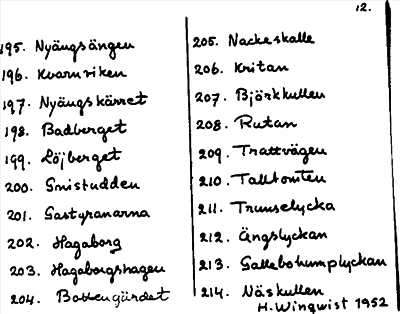 12.
195. Nyängsängen
196. Kvarnviken
197. Nyängskärret
198. Badberget
199. Löjberget
200. Snistudden
201. Gastyranarna
202. Hagaborg
203. Hagaborgshagen
204. Bottengärdet
205. Nackeskalle
206. Kritan
207. Björkkullen
208. Rutan
209. Trattvägen
210. Talltomten
211. Trunselycka
212. Ängslyckan
213. Gallebohumplyckan
214. Näskullen
H. Winqwist 1952